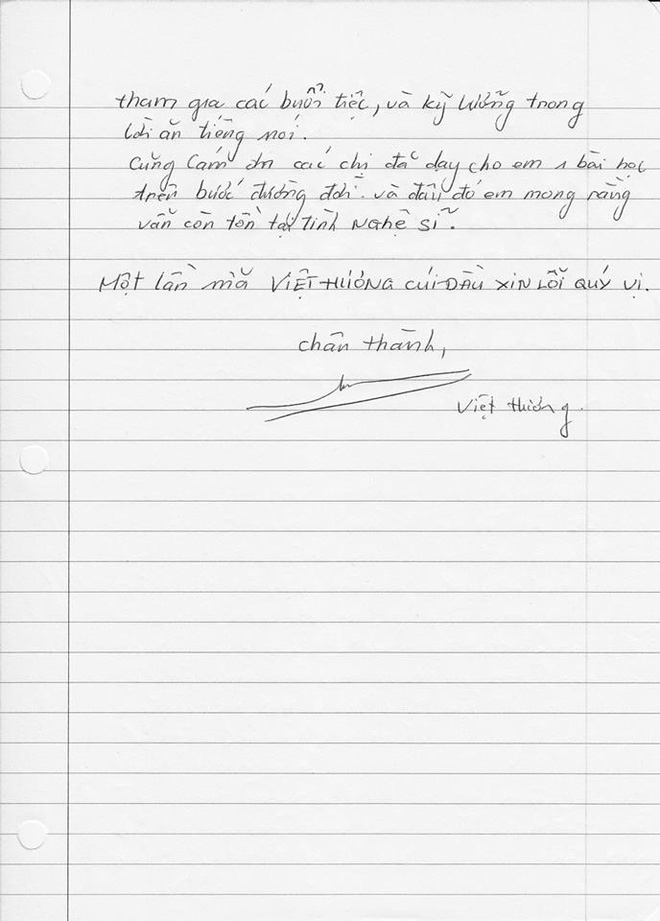 tham gia các buổi tiệc, và kỹ lưỡng trong
lời ăn tiếng nói.
Cũng Cám ơn các chị đã dạy cho em 1 bài học
trên bước đường đời. và đâu đó em mong rằng
vẫn còn tồn tại tình nghệ sĩ.
Một lần nữa VIỆT HƯƠNG CÚI ĐẦU XIN LỖI QUÝ VỊ.
chân thành,
Việt Hương.